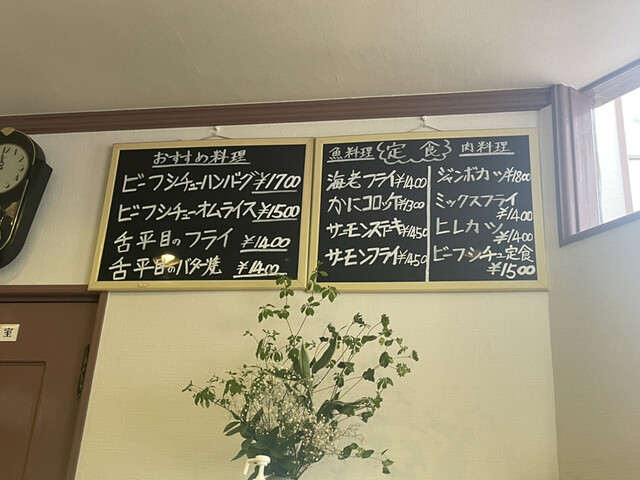 おすすめ料理
ビーフシチューハンバーグ ¥1700
ビーフシチューオムライス ¥1500
舌平目のフライ ¥1400
舌平目のバター焼 ¥1400
魚料理 定食 肉料理
海老フライ ¥1400
かにコロッケ ¥1300
サーモンステーキ ¥1450
サーモンフライ ¥1450
ジャンボカツ ¥1800
ミックスフライ
¥1400
ヒレカツ
¥1400
ビーフシチュー定食
¥1500
室